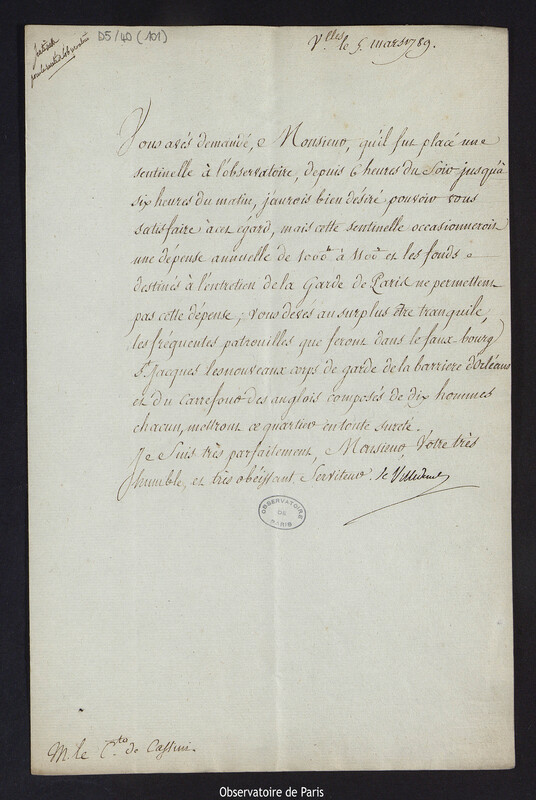 D5/40 (101)
V.lles le 5. mars 1789.
Vous avés demandé, Monsieur, qu'il fut placé une
sentinelle à l'observatoire, depuis 6 heures du Soir jusqu'à
six heures du matin, j'aurois bien désiré pouvoir vous
satisfaire à cet égard, mais cette sentinelle occasionneroit
une dépense annuelle de 1000# à 1100# et les fonds
destinés à l'entretien de la Garde de Paris ne permettent
pas cette dépense; vous devés au surplus être tranquile,
les fréquentes patrouilles que feront dans le faux-bourg
St. Jacques les nouveaux corps de garde de la barriere d'Orléans
et du Carrefour des anglois composés de dix hommes
chacun, mettront ce quartier en toute sureté.
Je Suis très parfaitement, Monsieur, Votre très
humble, et très obéissant Serviteur. de Villedeuil
OBSERVATOIRE
DE
PARIS
M. le C.te de Cassini.
Observatoire de Paris